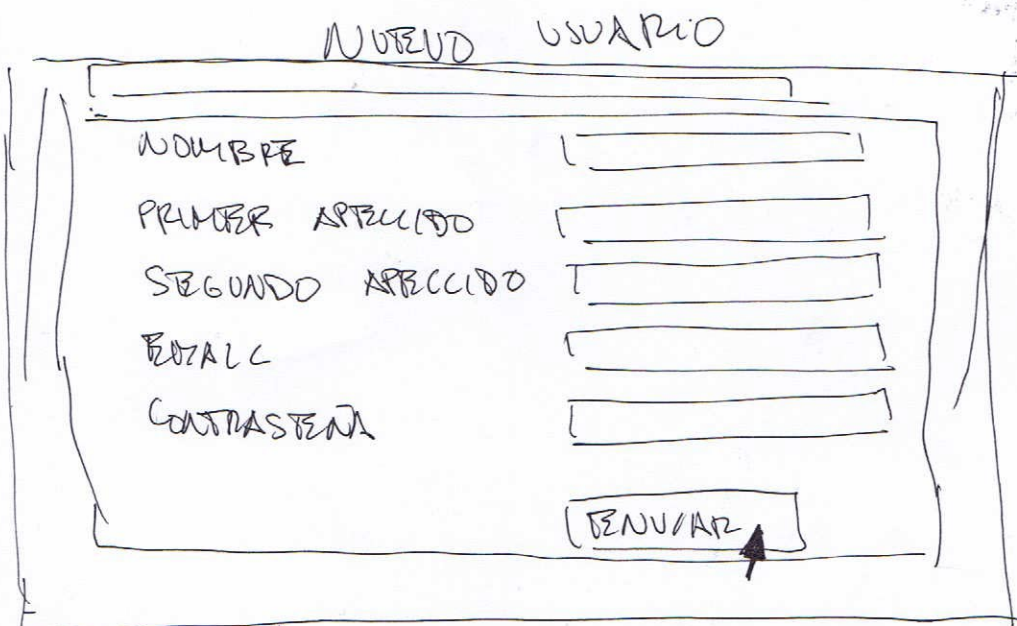 NUEVO USUARIO
NOMBRE
PRIMER APELLIDO
SEGUNDO APELLIDO
EMAIL
CONTRASEÑA
ENVIAR